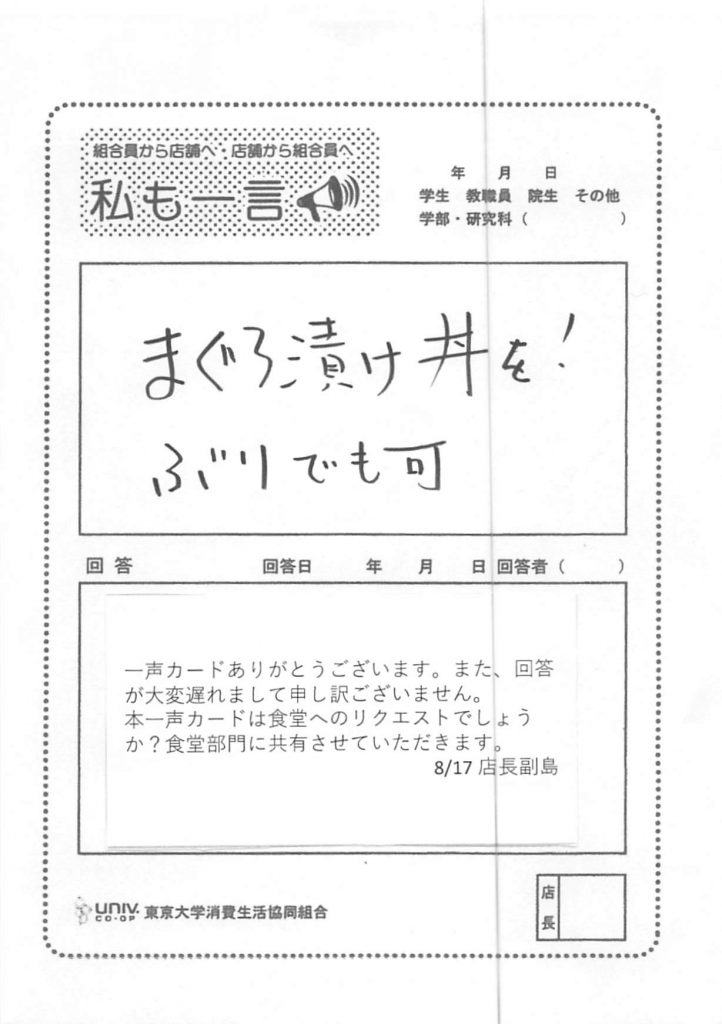 組合員から店舗へ・店舗から組合員へ
私も一言
年 月 日
学生 教職員 院生 その他
学部・研究科（ ）
まぐろ漬け丼を!
ぶりでも可
回答 回答日 年 月 日 回答者（ ）
一声カードありがとうございます。また、回答
が大変遅れまして申し訳ございません。
本一声カードは食堂へのリクエストでしょう
か？食堂部門に共有させていただきます。
8/17 店長副島
UNIV.
CO-OP
東京大学消費生活協同組合
店長